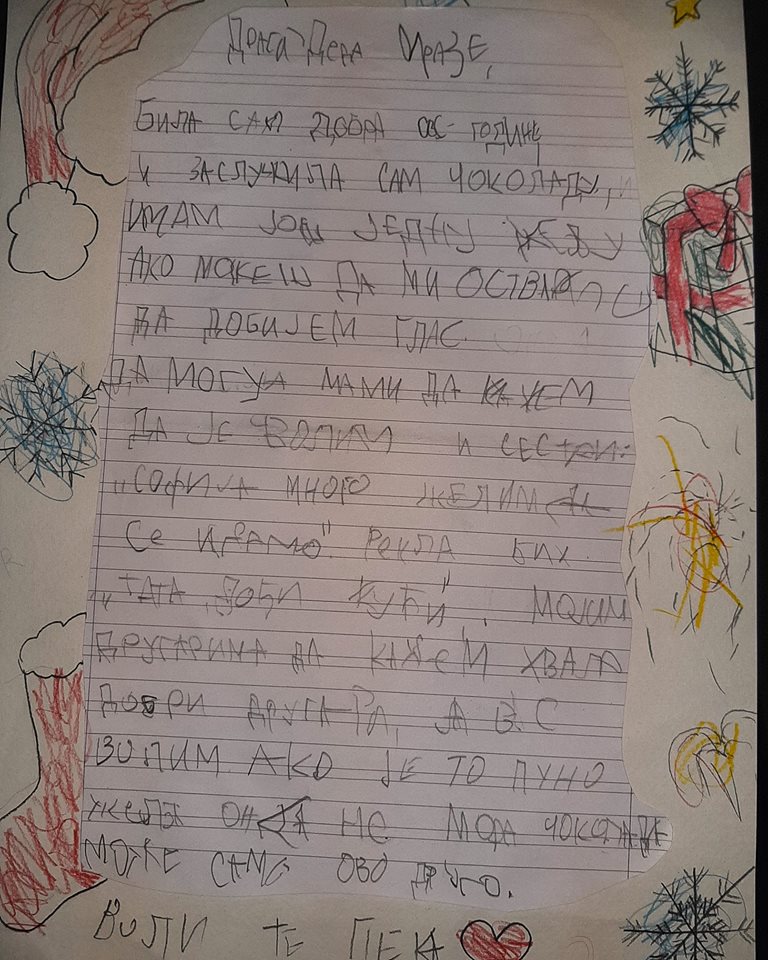 Драга Деда Мразе,
БИЛА САМ ДОБРА ОВЕ ГОДИНЕ
И ЗАСЛУЖИЛА САМ ЧОКОЛАДУ,
ИМАМ ЈОШ ЈЕДНУ ЖЕЉУ
АКО МОЖЕШ ДА МИ ОСТВАРИ
ДА ДОБИЈЕМ ГЛАС.
ДА МОГУ МАМИ ДА КАЖЕМ
ДА ЈЕ ВОЛИМ И СЕСТРИ:
„СОФИЈА МНОГО ЖЕЛИМ ДА
Се ИГРАМО" РЕКЛА БИХ
„ТАТА, ДОЂИ КУЋИ". МОЈИМ
ДРУГАРИМА ДА КАЖЕМ ХВАЛА
ДОБРИ ДРУГАРИ, ЈА ВАС
ВОЛИМ. АКО ЈЕ ТО ПУНО
ЖЕЉА ОНДА НЕ МОРА ЧОКОЛАДА
МОЖЕ САМО ОВО ДРУГО.
ВОЛИ ТЕ ПЕКА